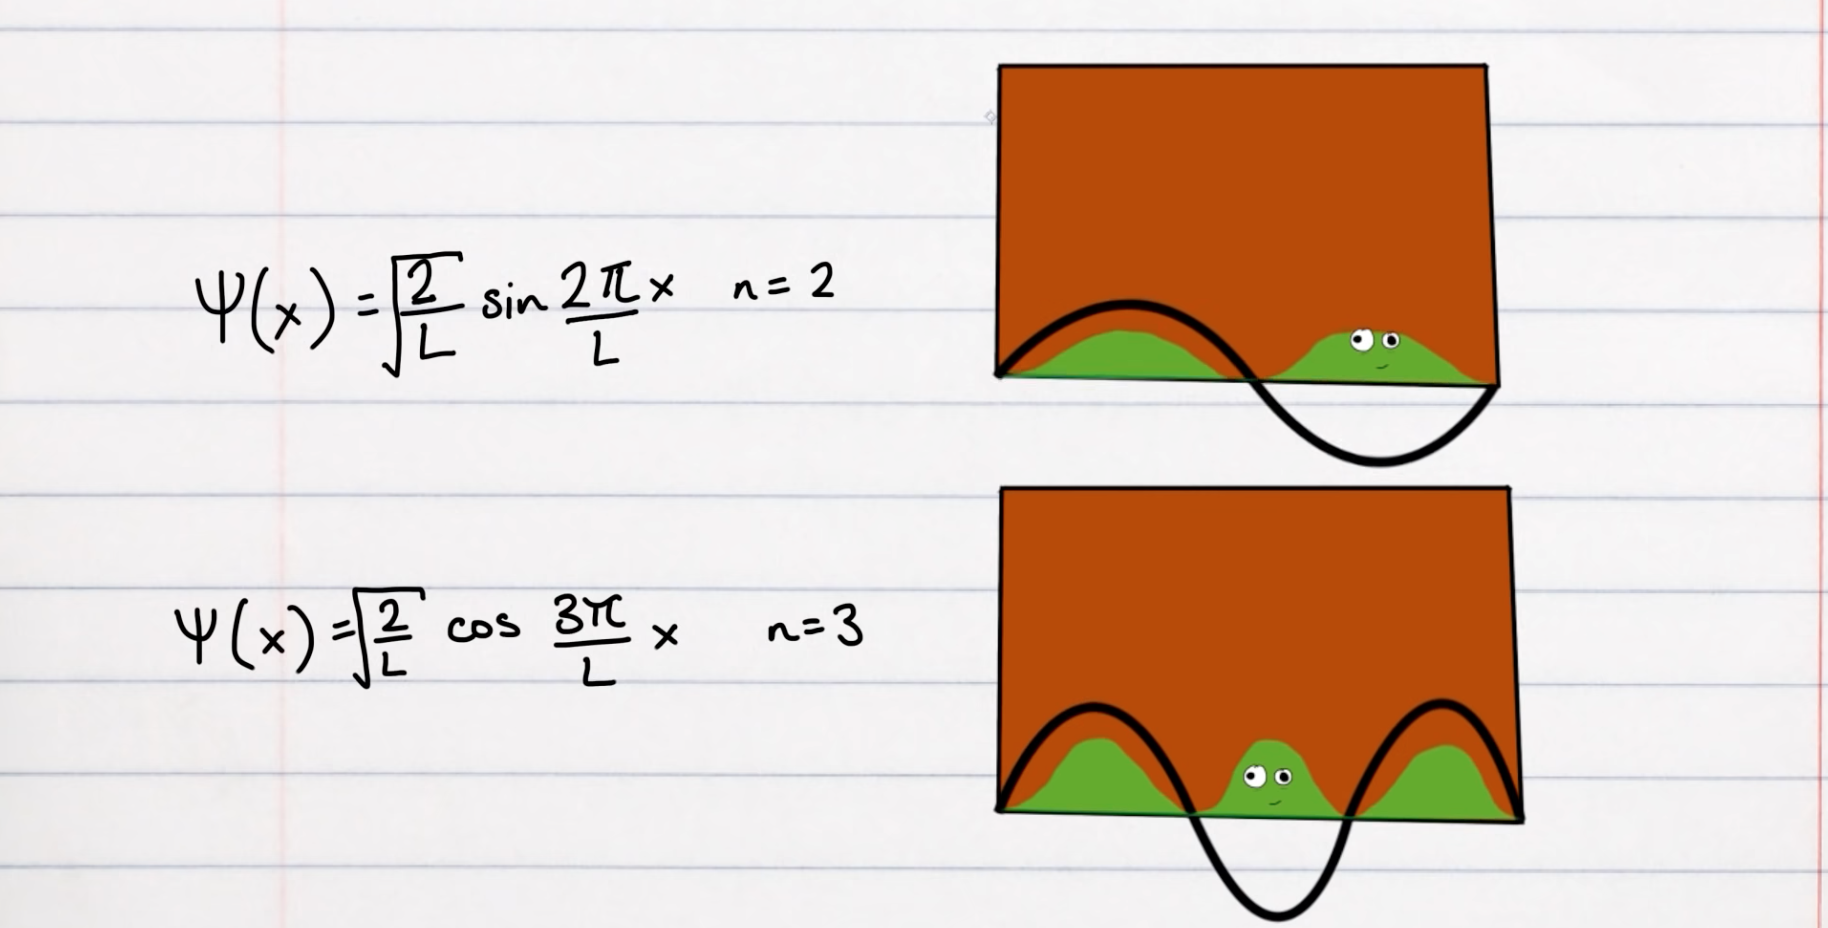 Ψ(x) = √(2/L) sin 2π/L x n = 2
Ψ(x) = √(2/L) cos 3π/L x n = 3